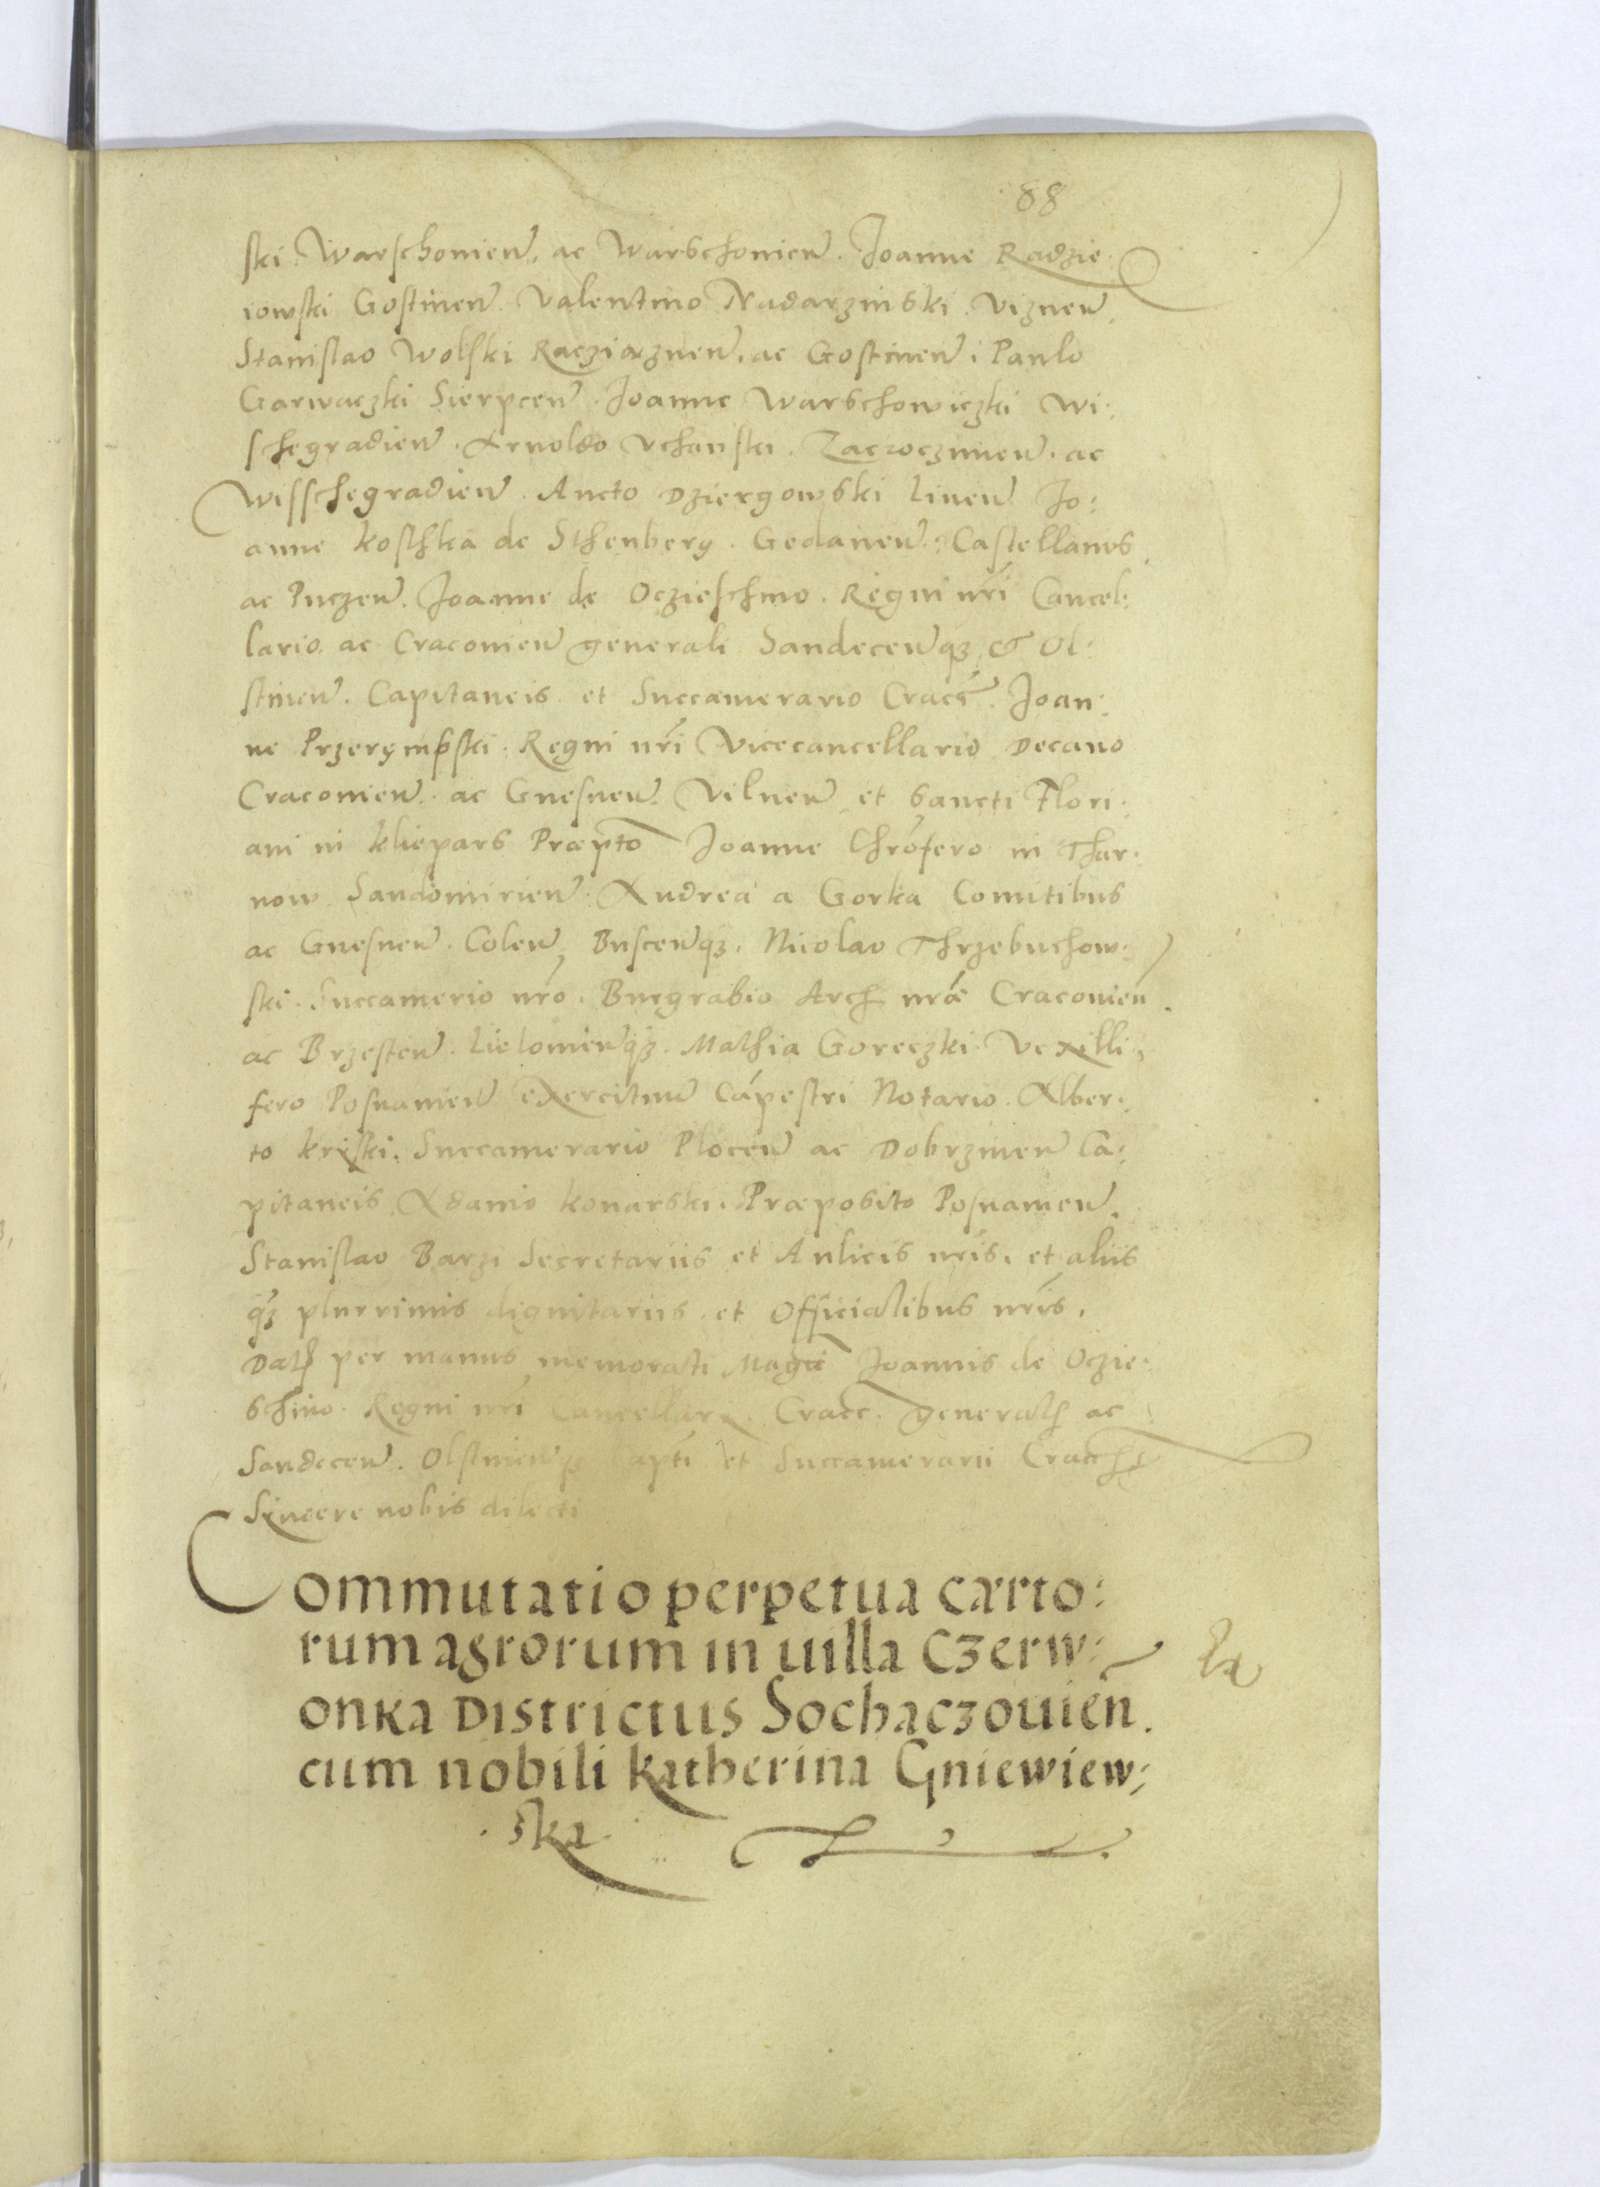 88
ski. Warschonien̄. ac Warschonien̄. Joanne Radzie
iowski Gostinen̄. Valentino Nadarzinski. Viznen̄.
Stanislao Wolski Racziąznen̄. ac Gostinen̄. Paulo
Garwaczki Sierpcen̄. Joanne Warschowiczki Wi:
schegradien̄. Arnoldo Uchanski. Zacroczimen̄. ac
Wisschegradien̄. Ancto Dziergowski Linen̄ Jo:
anne Kosthka de Sthenberg. Gedanen̄. Castellanus
ac Puczen̄. Joanne de Oczieschino. Regni nr̄i Cancel:
lario. ac Cracouien̄ generali Sandecen̄qз et Ol:
stinen̄. Capitaneis. et Succamerario Crac̄. Joan:
ne Przeręmpski. Regni nr̄i Vicecancellario Decano
Cracouien̄. ac Gnesnen̄. Vilnen̄ et Sancti Flori:
ani in kliepars Præpto Joanne Chrōfero in Thar:
now Sandomirien̄. Andrea a Gorka Comitibus
ac Gnesnen̄. Colen̄, Buscen̄qз. Nicolao Thrzebuchow:
ski. Succamerio nr̄o. Burgrabio Arch nræ Cracouien̄.
ac Brzesten̄. Lielouien̄qз. Mathia Goreczki Vexilli:
fero Posnanien̄ exercituu Cāpestri Notario. Alber:
to kriski. Succamerario Plocen̄ ac Dobrzinen̄ Ca:
pitaneis Adamo konarski. Præposito Posnanien̄.
Stanislao Barzi Secretariis et Aulicis nr̄is. et aliis
qз plurrimis dignitariis. et Officialibus nr̄is.
Dath per manus memorati Magci Joannis de Oczie:
schino. Regni nr̄i Cancellarii. Cracc. generath ac
Sandecen̄. Olstinien̄qз Capti et Succamerarii Cracc
Syncere nobis dilecti
Commutatio perpetua carto:
rum agrorum in villa Czerw:
onka Districtus Sochaczouien̄.
cum nobili katherina Gniewiew:
ska